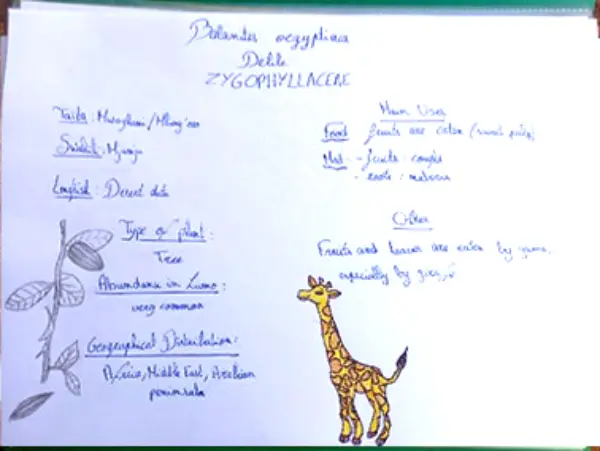 Balanites aegyptiaca
Delile
ZYGOPHYLLACEAE
Taita :
Swahili : Mjunju
English : Desert date
Type of plant :
Tree
Abundance in Lumo :
very common
Geographical Distribution :
Africa, Middle East, Arabian
peninsula
Main Uses
Food : fruits are eaten (sweet pulp)
Med : - fruits : cough
- roots : malaria
Other
Fruits and leaves are eaten by game,
especially by